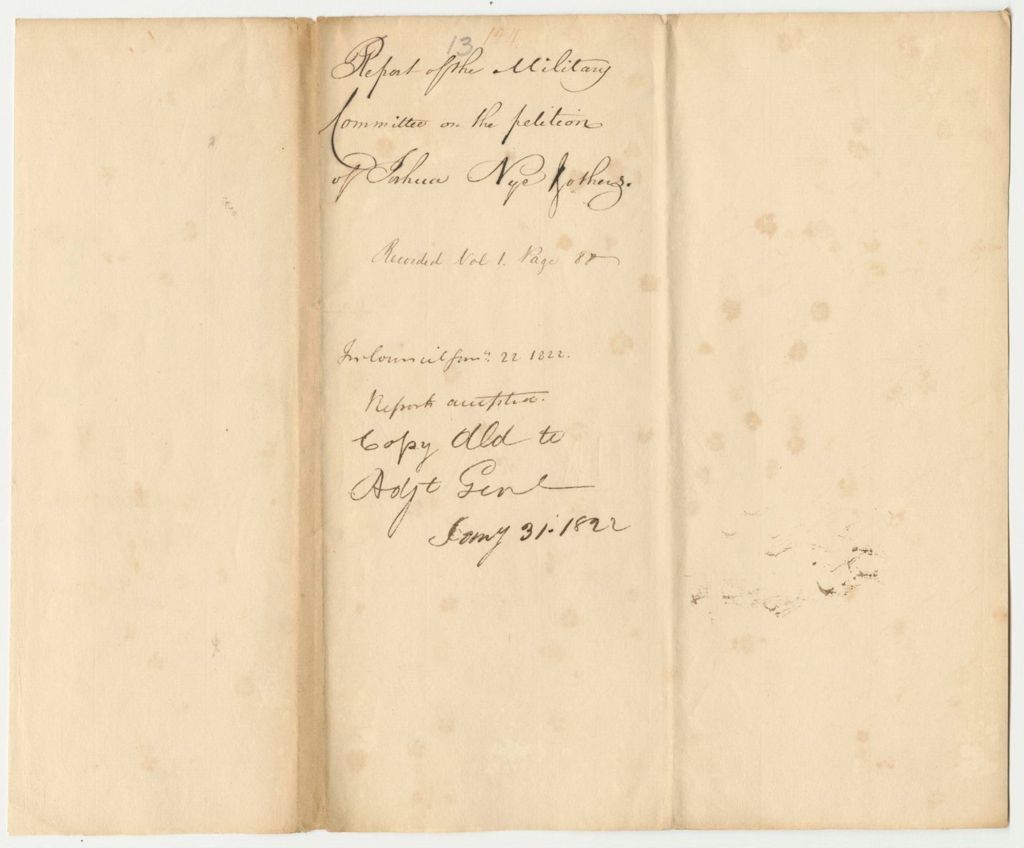 13 144
Report of the Military
Committee on the petition
of Joshua Nye & others.
Recorded Vol 1. Page 88
In Council Jany. 22 1822.
Report accepted.
Copy dld to
Adjt Genl
Jany 31. 1822